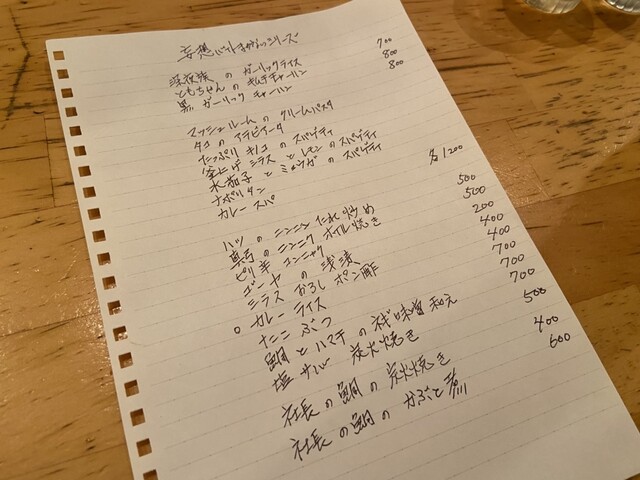 妄想バイトまかないシリーズ
深夜族 の ガーリックライス 700
ともちゃん の キムチチャーハン 800
黒 ガーリック チャーハン 800
マッシュルーム の クリームパスタ
タコ の アラビアータ
たっぷり キノコ の スパゲティ
釜上げ シラス と レモン の スパゲティ
水茄子 と ミョウガ の スパゲティ
ナポリタン
カレー スパ
各1200
ハツ の ニンニン だれ炒め 500
真弓 の ニンニク オイル焼き 500
ピリ辛 コンニャク 200
ゴーヤ の 浅漬 400
シラス おろし ポン酢 400
カレー ライス 700
ナニコ ぶつ 700
鯛 と ハマチ の ネギ味噌和え 700
塩 サバ 炭火焼き 500
社長 の 鯛 の 炭火焼き 400
社長 の 鯛 の かぶと煮 600